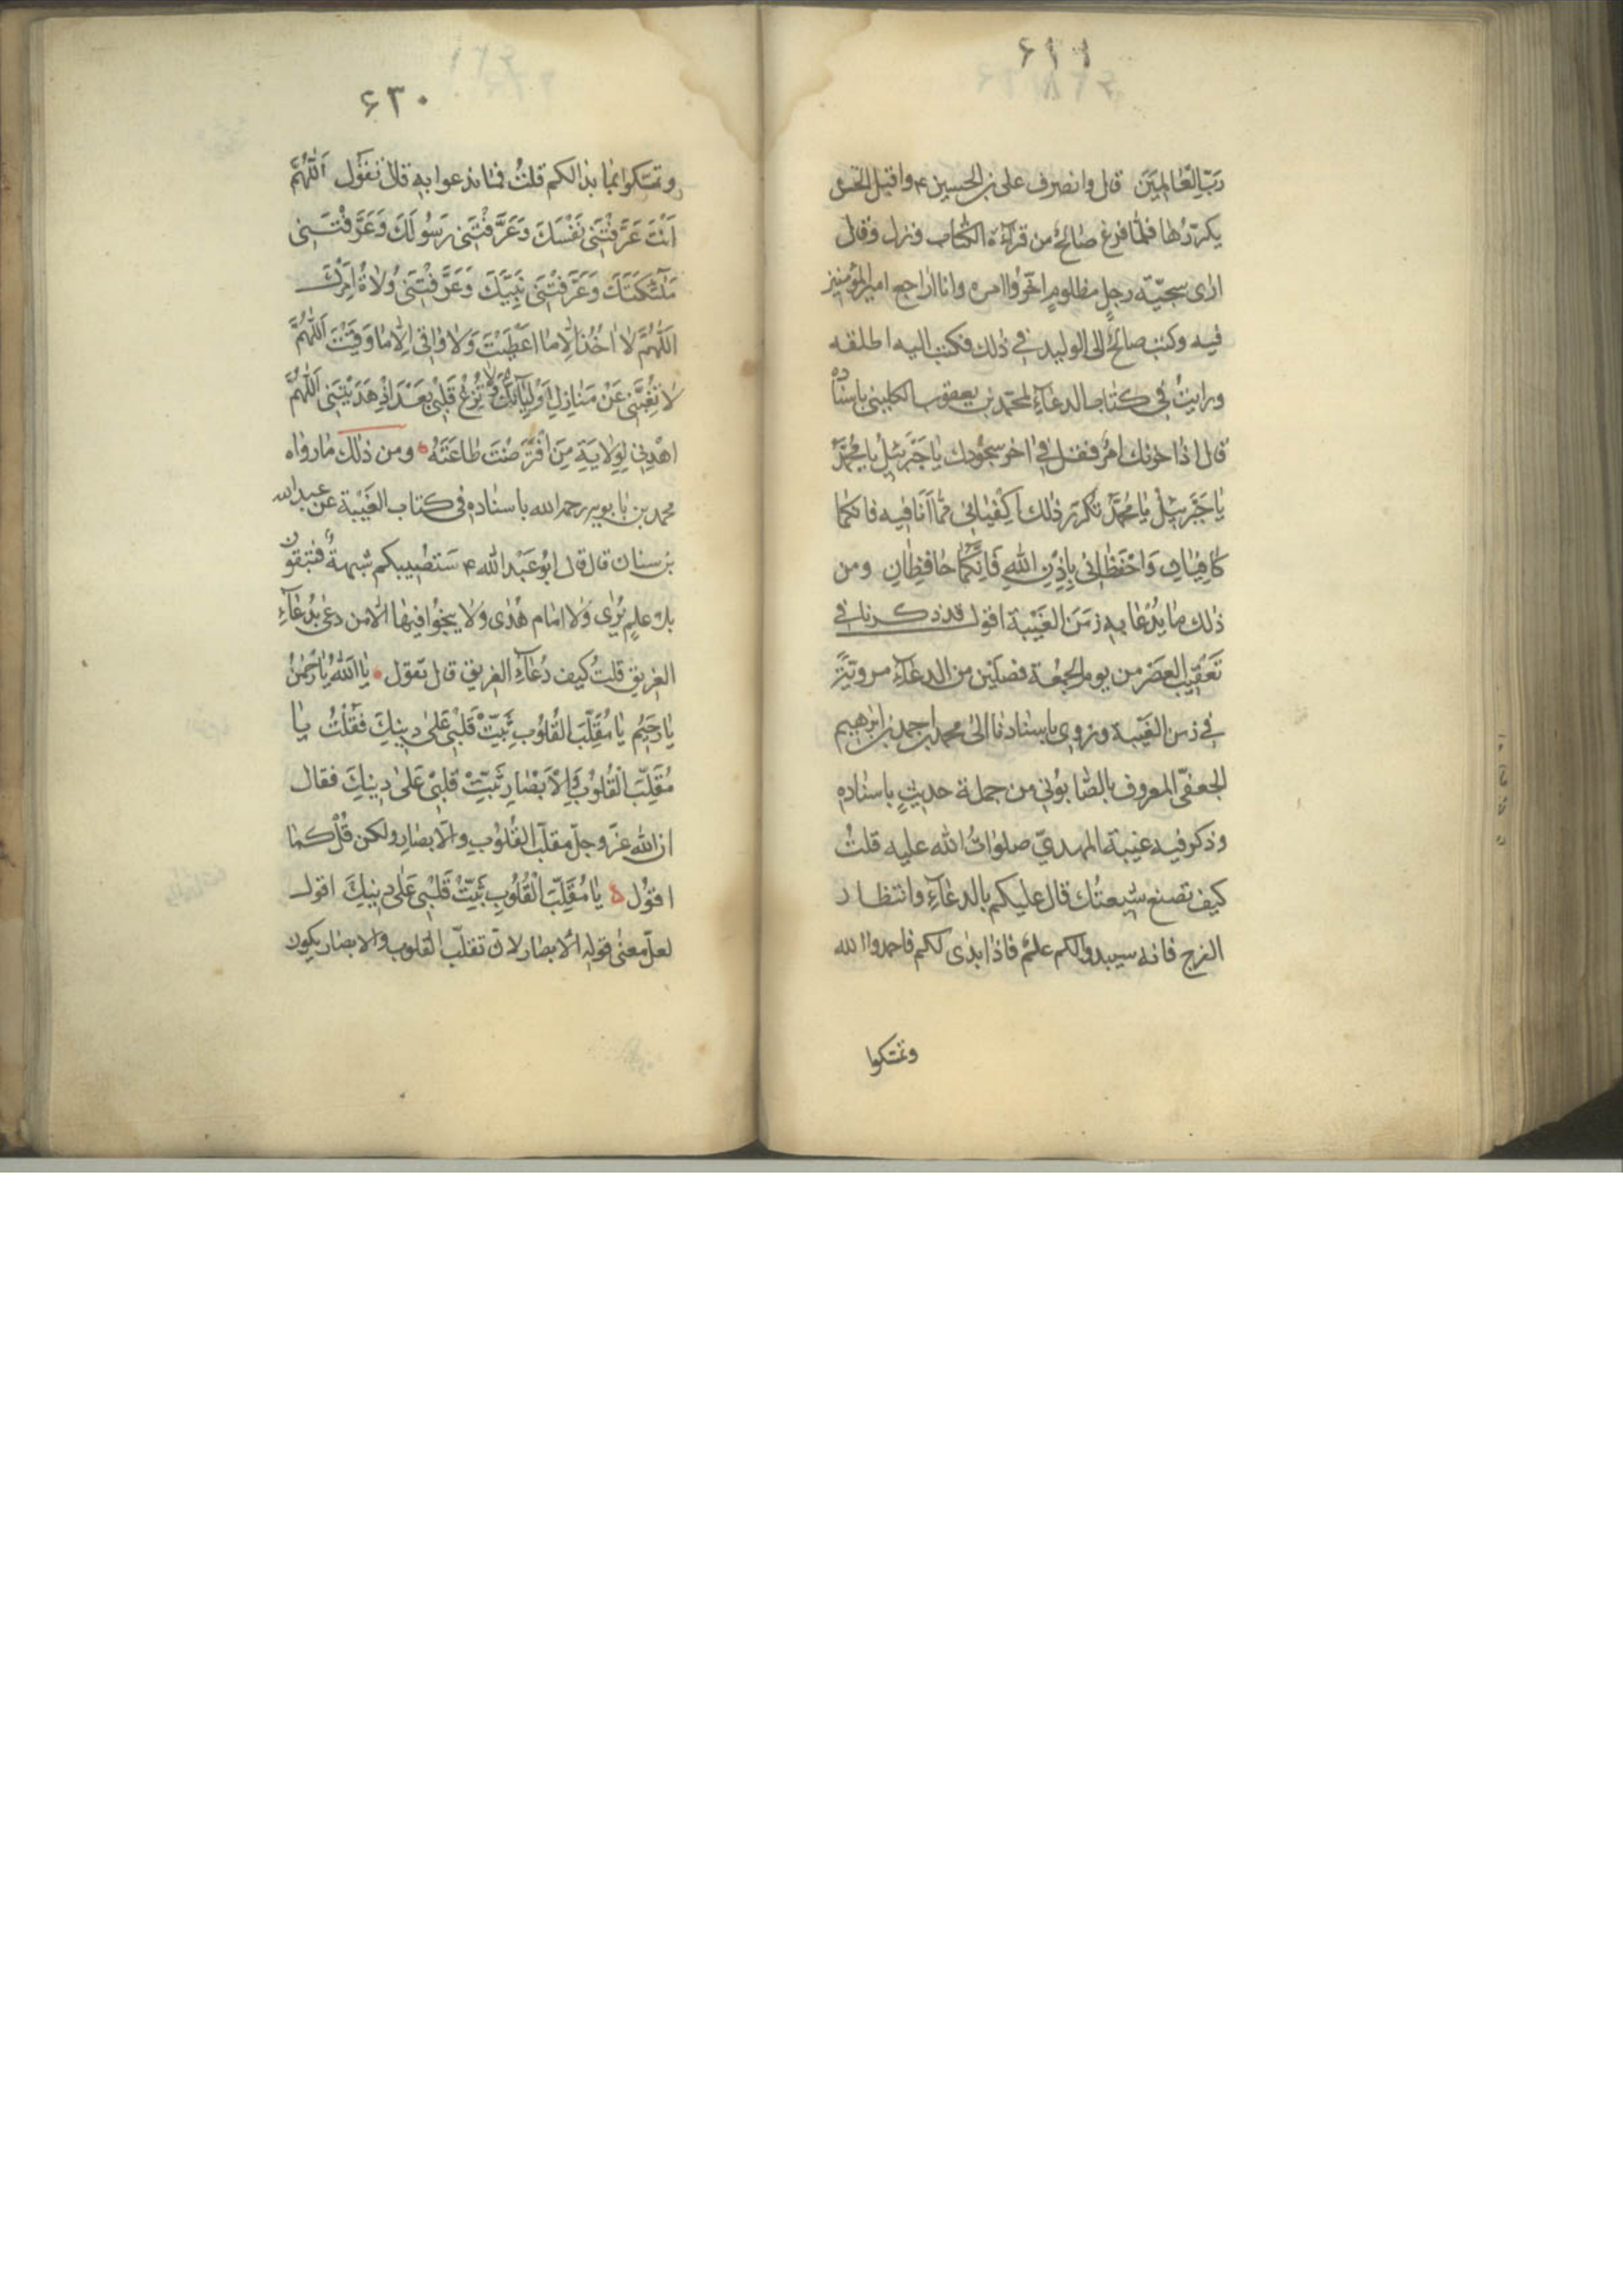 رَبِّ الْعَالَمِينَ قال وانصرف علي بن الحسين ۴ واقبل الحسن
يكرّرها فلمّا فرغ صالح من قرآءة الكتاب ونزل وقال
ارى سجيّة رجل مظلوم اخّروا امره وانا اراجع امير المؤمنين
فيه وكتب صالح الى الوليد في ذلك فكتب اليه اطلقه
ورايت في كتاب الدعآء لمحمّد بن يعقوب الكليني باسناده
قال اذا حزنك امر فقل في اخر سجودك يا جَبْرَئيلُ يا مُحَمَّدُ
يا جَبْرَئيلُ يا مُحَمَّدُ تكرّر ذلك اَكْفِيانى ممّا اَنَا فيه فانكما
كافِيانِ وَاحْفَظانى بِاِذْنِ اللهِ فَاِنَّكُما حافِظانِ ومن
ذلك ما يُدْعا به زمن الغَيْبة اقول قد ذكرنا في
تعقيب العصر من يوم الجمعة فصلين من الدعآء مرويّة
في زمن الغيبة ونروى باسنادنا الى محمد بن احمد بن ابرهيم
الجعفىّ المعروف بالصّابونى من جملة حديث باسناده
وذكر فيه غيبة المهديّ صلوات الله عليه قلت
كيف تصنع شيعتك قال عليكم بالدعآء وانتظار
الفرج فانه سيبدوا لكم علم فاذا بدى لكم فاحمدوا الله
وتمسّكوا
۶۳۰
وتمسّكوا بما بدا لكم قلت فما ندعوا به قال تقول اَللّهُمَّ
اَنْتَ عَرَّفْتَنى نَفْسَكَ وَعَرَّفْتَنى رَسُولَكَ وَعَرَّفْتَنى
مَلئِكَتَكَ وَعَرَّفْتَنى نَبِيَّكَ وَعَرَّفْتَنى وُلاةَ اَمْرِكَ
اَللّهُمَّ لا اخُذُ اِلاّ ما اَعْطَيْتَ وَلا واقِىَ اِلاّ ما وَقَيْتَ اَللّهُمَّ
لا تُغَيِّبْنى عَنْ مَنازِلِ اَوْلِيآئِكَ وَلا تُزِغْ قَلْبى بَعْدَ اِذْ هَدَيْتَنى اَللّهُمَّ
اهْدِنى لِوِلايَةِ مَنِ افْتَرَضْتَ طاعَتَهُ ومن ذلك ما رواه
محمد بن بابويه رحمه الله باسناده في كتاب الغَيْبة عن عبد الله
بن سنان قال قال ابو عبد الله ۴ ستصيبكم شبهة فتبقون
بلا علم يُرى ولا امام هُدى ولا ينجوا فيها الاّ من دعى بدعآء
الغريق قلت كيف دُعآء الغريق قال تقول يا اَللهُ يا رَحْمنُ
يا رَحيمُ يا مُقَلِّبَ القُلُوبِ ثَبِّتْ قَلْبى عَلى دينِكَ فَقُلْتُ يا
مُقَلِّبَ الْقُلُوبِ وَالاَبْصارِ ثَبِّتْ قَلْبى عَلى دينِكَ فقال
ان الله عزّ وجلّ مقلّب القُلوب والابصار ولكن قُل كما
اقول يا مُقَلِّبَ الْقُلُوبِ ثَبِّتْ قَلْبى عَلى دينِكَ اقول
لعلّ معنى قوله الابصار لانّ تقلّب القلوب والابصار يكون